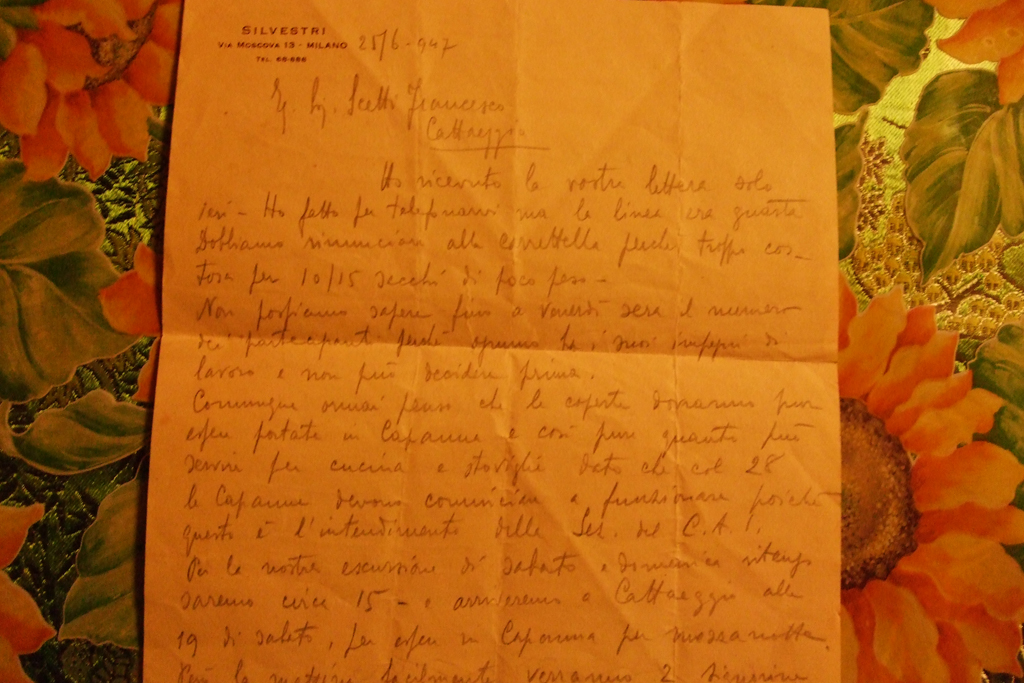 SILVESTRI
VIA MOSCOVA 13 - MILANO
TEL. 66-666
25/6-947
Eg. Sig. Scetti Francesco
Cattaeggio
Ho ricevuto la vostra lettera solo
ieri - Ho fatto per telefonarvi ma la linea era guasta
Dobbiamo rinunciare alla carrettella perché troppo cos-
tosa per 10/15 sacchi di poco peso -
Non possiamo sapere fino a venerdì sera il numero
dei partecipanti perché ognuno ha i suoi impegni di
lavoro e non può decidere prima.
Comunque ormai penso che le coperte dovranno pur
esser portate in Capanna e così pure quanto può
servire per cucina e stoviglie dato che col 28
le Capanne devono cominciare a funzionare poiché
questo è l'intendimento della Sez. del C.A.I.
Per la nostra escursione di sabato e domenica ritengo
saremo circa 15 - e arriveremo a Cattaeggio alle
19 di sabato, per esser in Capanna per mezzanotte
facilmente verranno 2 signorine